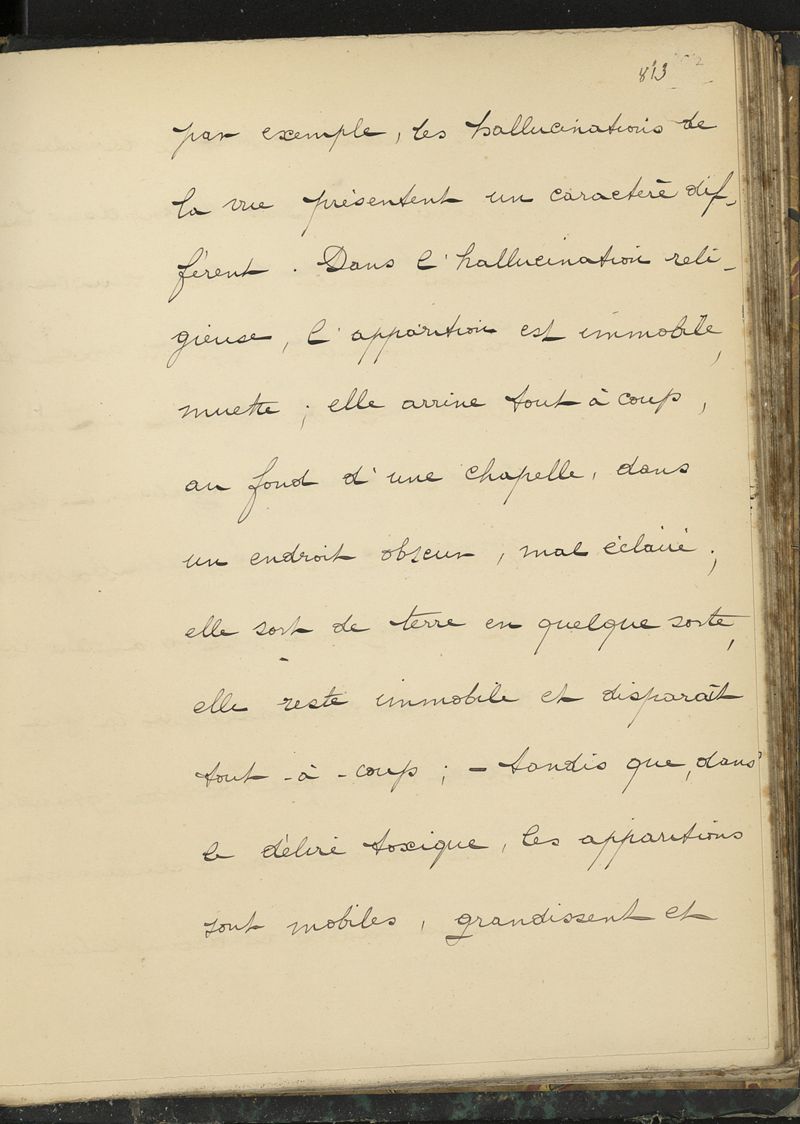 813
par exemple, les hallucinations de
la vue présentent un caractère dif-
férent. Dans l'hallucination reli-
gieuse, l'apparition est immobile,
muette ; elle arrive tout à coup,
au fond d'une chapelle, dans
un endroit obscur, mal éclairé ;
elle sort de terre en quelque sorte,
elle reste immobile et disparaît
tout-à-coup ; - tandis que, dans
le délire toxique, les apparitions
sont mobiles, grandissent et